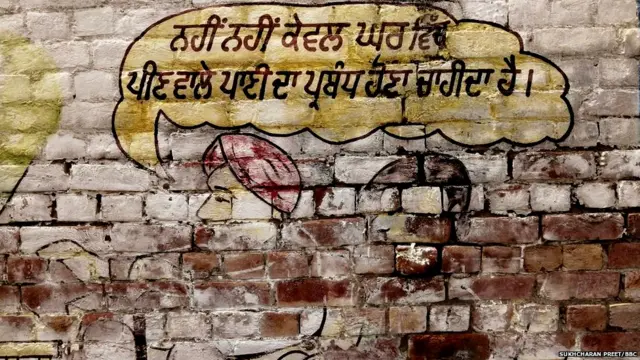 ਨਹੀਂ ਨਹੀਂ ਕੇਵਲ ਘਰ ਵਿੱਚ
ਪੀਣ ਵਾਲੇ ਪਾਣੀ ਦਾ ਪ੍ਰਬੰਧ ਹੋਣਾ ਚਾਹੀਦਾ ਹੈ।
SUKHCHARAN PREET/BBC